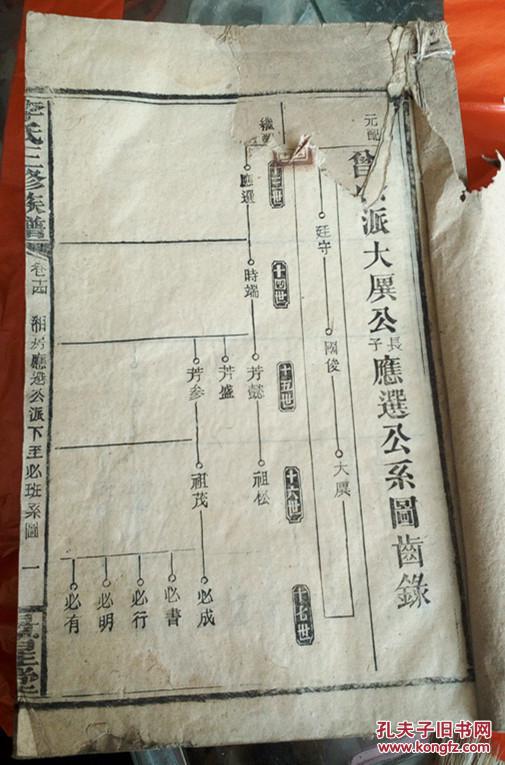 元配
派大厲公長子應選公系圖齒錄
廷守
國俊
大厲
應選
十四世
時端
十五世
芳懿
芳盛
芳參
十六世
祖松
祖茂
十七世
必成
必書
必行
必明
必有
氏三修族譜
應選公派下至必班系圖
一
孔夫子旧书网
www.kongfz.com